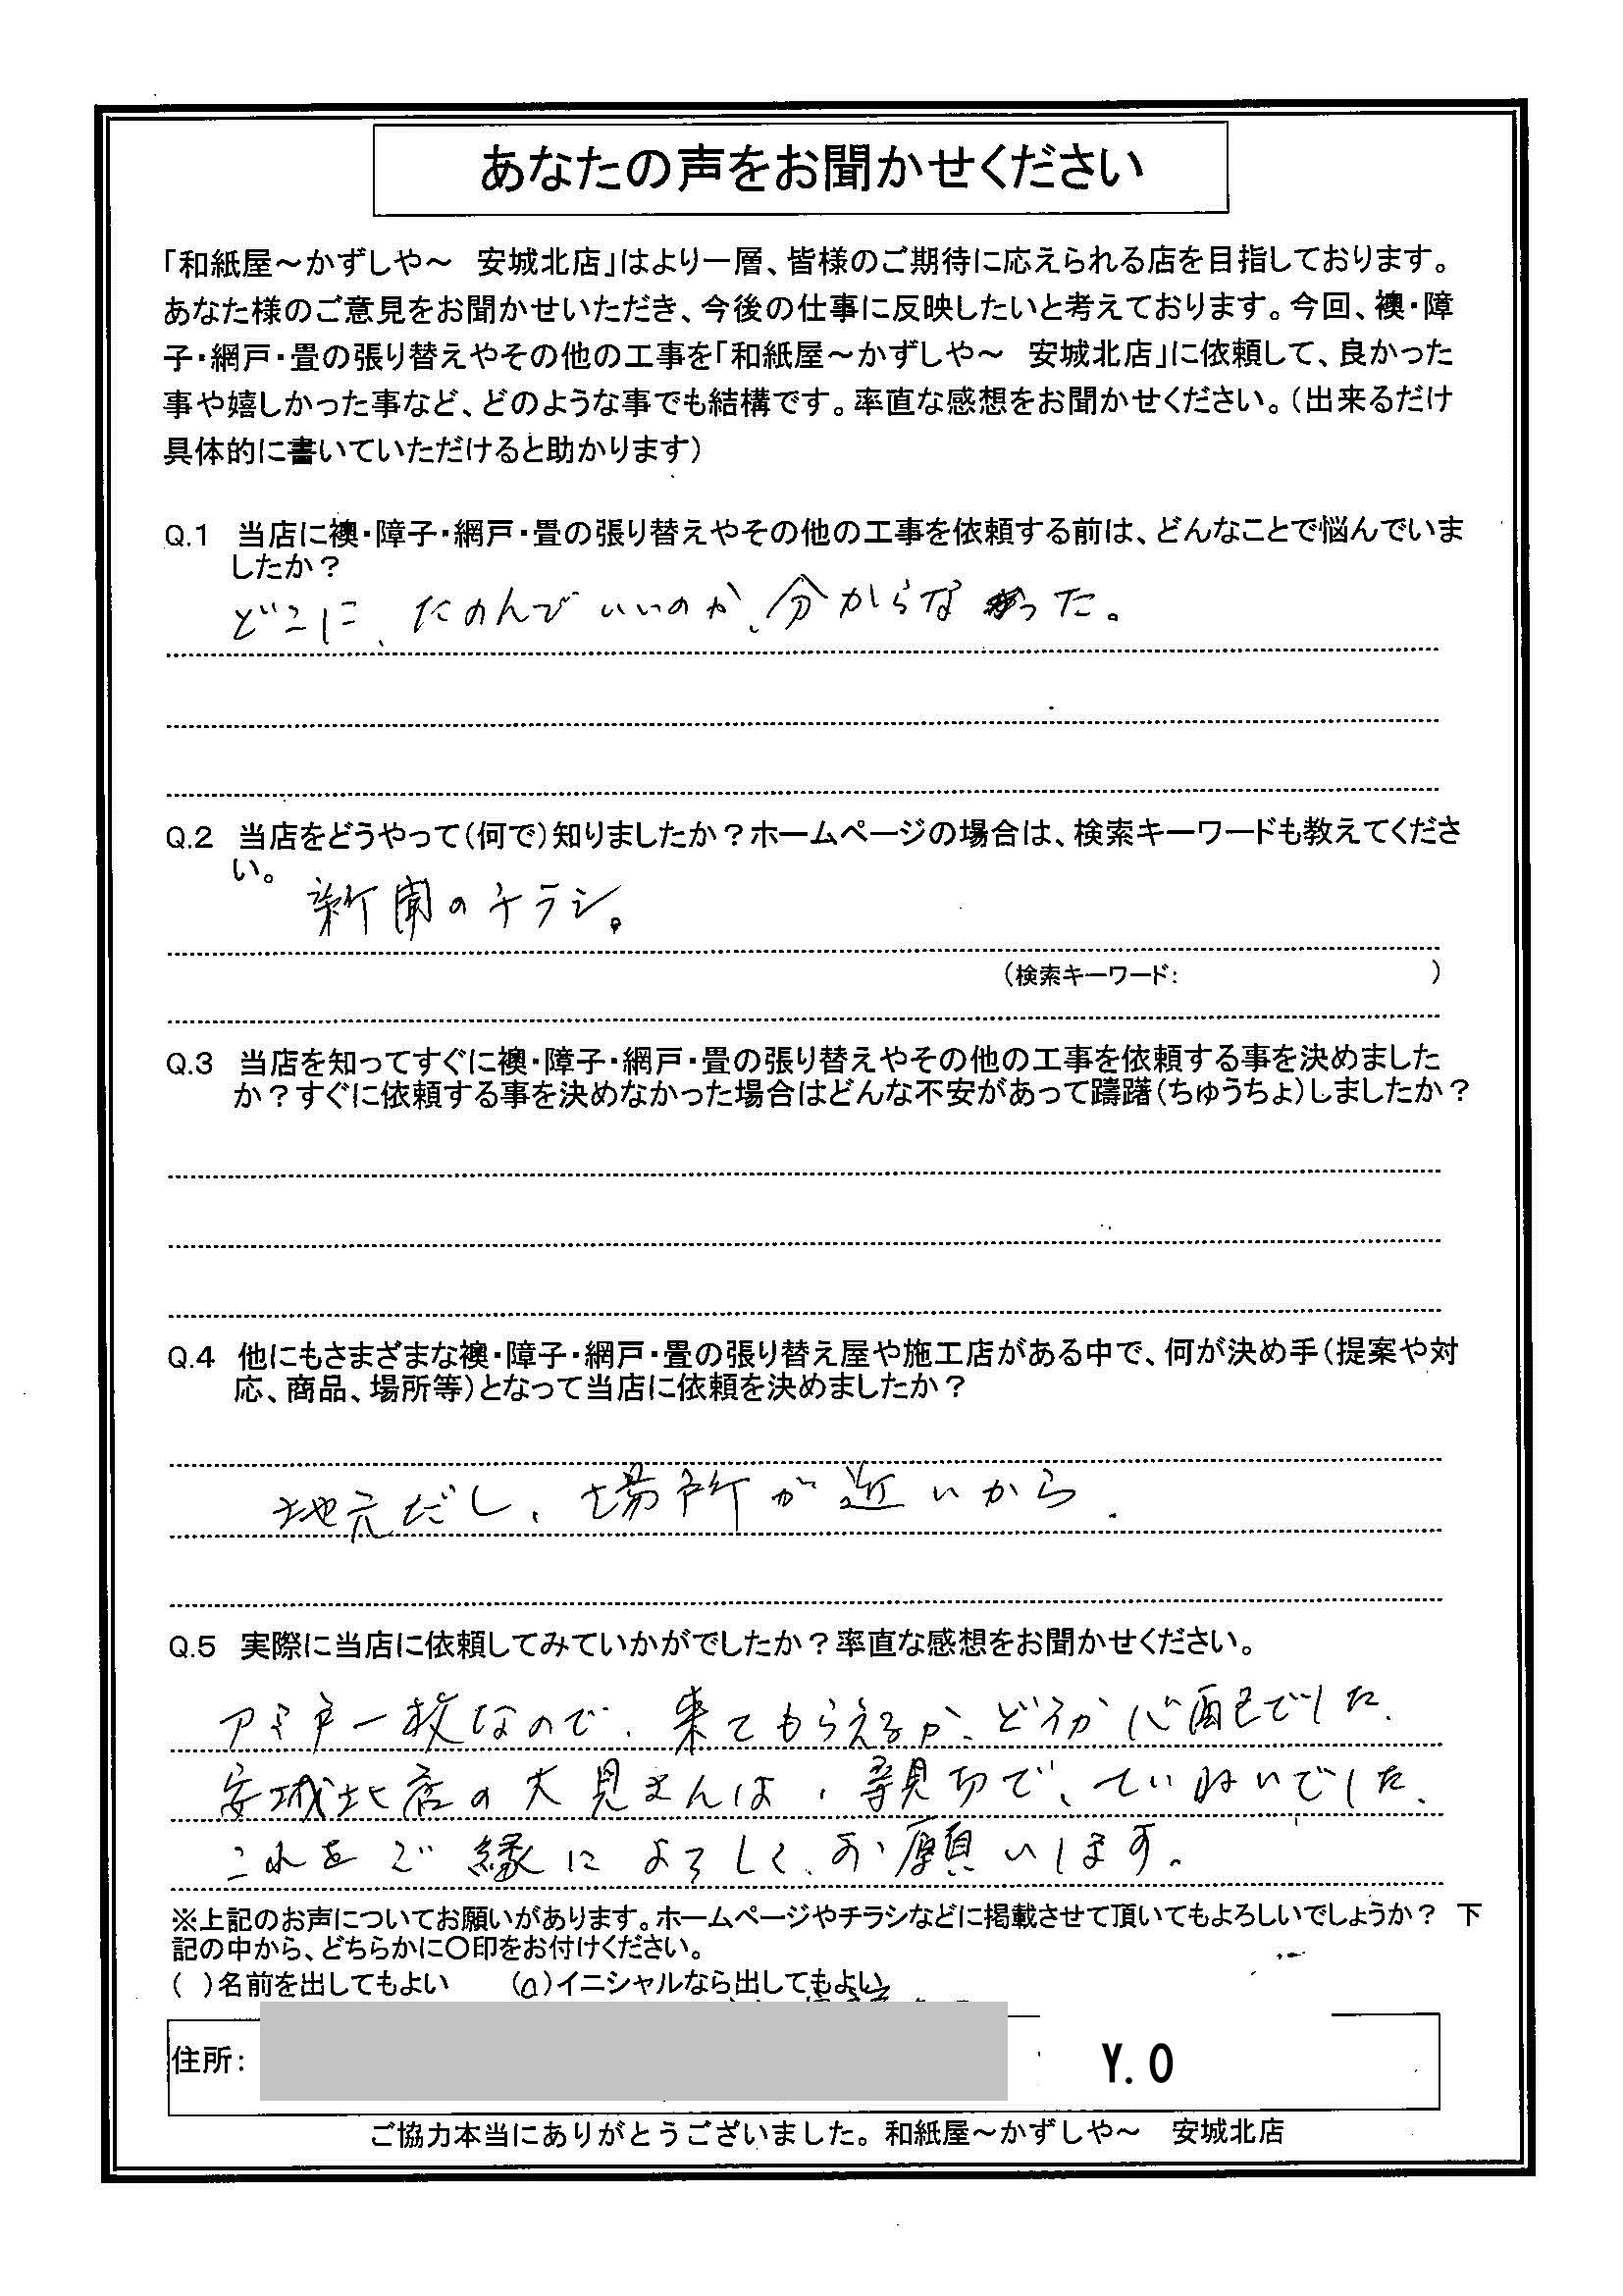 あなたの声をお聞かせください
「和紙屋～かずしや～　安城北店」はより一層、皆様のご期待に応えられる店を目指しております。
あなた様のご意見をお聞かせいただき、今後の仕事に反映したいと考えております。今回、襖・障
子・網戸・畳の張り替えやその他の工事を「和紙屋～かずしや～　安城北店」に依頼して、良かった
事や嬉しかった事など、どのような事でも結構です。率直な感想をお聞かせください。（出来るだけ
具体的に書いていただけると助かります）
Q.1　当店に襖・障子・網戸・畳の張り替えやその他の工事を依頼する前は、どんなことで悩んでいま
したか？
どこに、たのんでいいのか、分からなかった。
Q.2　当店をどうやって（何で）知りましたか？ホームページの場合は、検索キーワードも教えてくださ
い。
新聞のチラシ。
（検索キーワード：　　　　　　　　）
Q.3　当店を知ってすぐに襖・障子・網戸・畳の張り替えやその他の工事を依頼する事を決めました
か？すぐに依頼する事を決めなかった場合はどんな不安があって躊躇（ちゅうちょ）しましたか？
Q.4　他にもさまざまな襖・障子・網戸・畳の張り替え屋や施工店がある中で、何が決め手（提案や対
応、商品、場所等）となって当店に依頼を決めましたか？
地元だし、場所が近いから.
Q.5　実際に当店に依頼してみていかがでしたか？率直な感想をお聞かせください。
アミ戸一枚なので、来てもらえるか、どうか心配でした.
安城北店の大見さんは、親切で、ていねいでした.
これをご縁によろしく、お願いします。
※上記のお声についてお願いがあります。ホームページやチラシなどに掲載させて頂いてもよろしいでしょうか？　下
記の中から、どちらかに〇印をお付けください。
（　）名前を出してもよい　　（○）イニシャルなら出してもよい
住所：　Y.O
ご協力本当にありがとうございました。和紙屋～かずしや～　安城北店